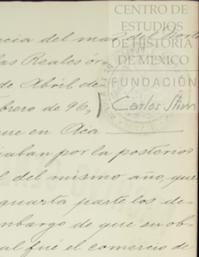 CENTRO DE
ESTUDIOS
DE HISTORIA
DE MEXICO
FUNDACIÓN
Carlos Slim
ncia del mar del
las Reales
de Abril de
brero de 96,
que en Aca
caban por la posterior
l del mismo año, que
quarta parte los de
embargo de que su ob-
al fué el comercio de